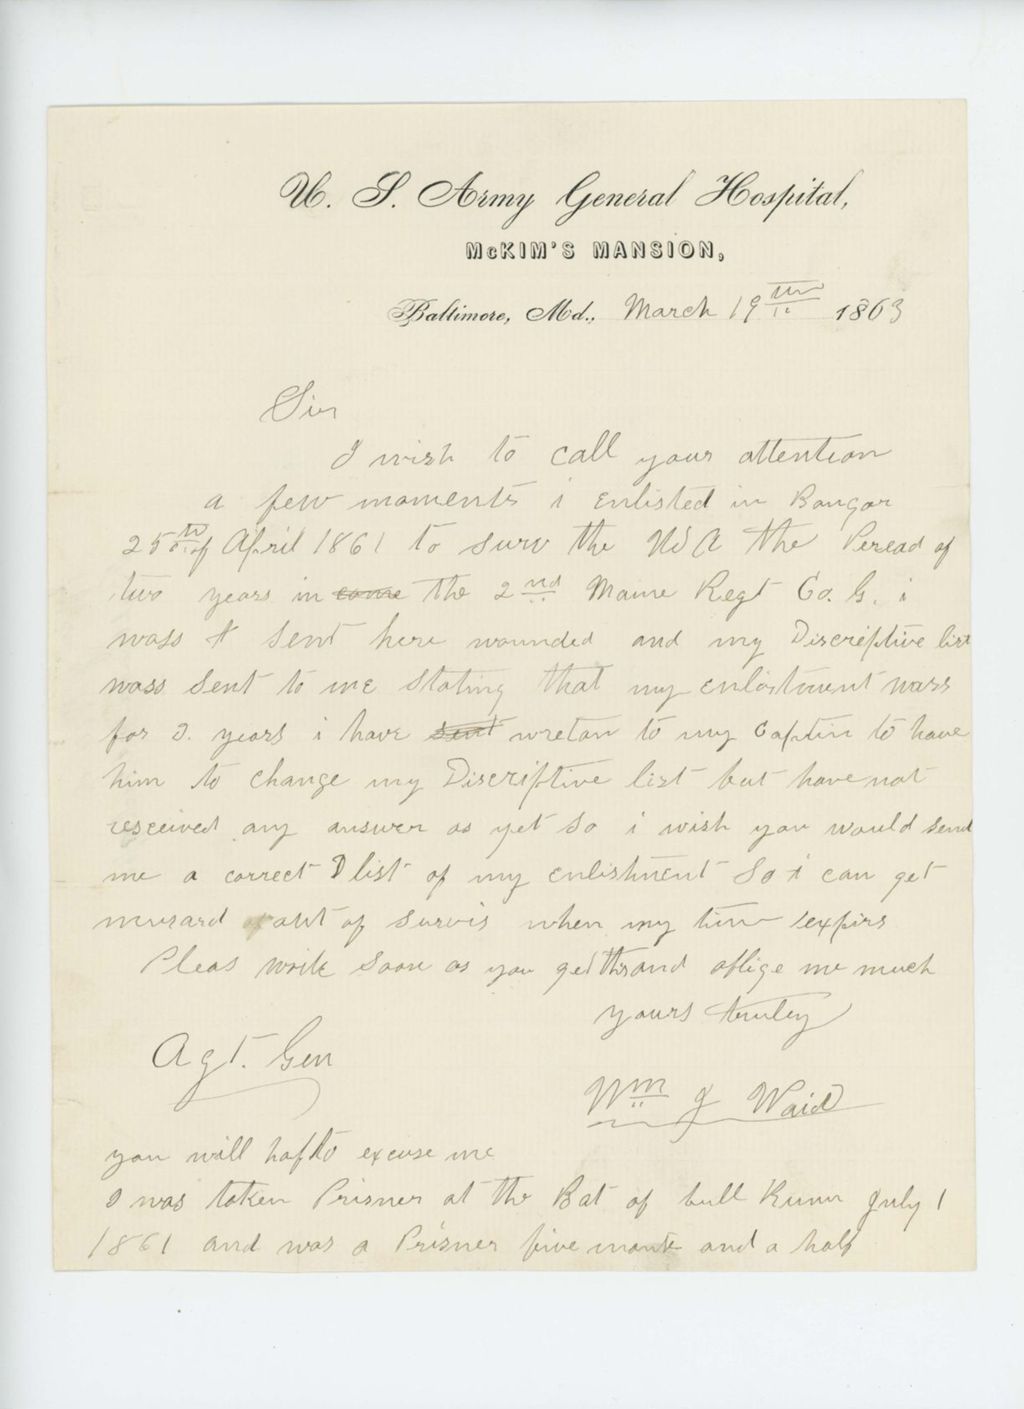 U. S. Army General Hospital,
McKIM'S MANSION,
Baltimore, Md., March 19th 1863
Sir
I wish to call your attention
a few moments i enlisted in Bangor
25th of April 1861 to surv the USA the Peread of
two years in come the 2nd Maine Regt Co. G. i
wass sent here wounded and my Discriptive list
wass sent to me stating that my enlistment wass
for 3. years i have sent wretan to my Captin to have
him to change my Discriptive list but have not
reseeived any answer as yet so i wish you would send
me a correct D list of my enlishment So i can get
out of survis when my time expirs
Pleas write soon as you get this and oblige me much
yours truley
Agt. Gen
Wm J Waid
you will hafto excuse me
I was taken Prisner at the Bat of bull Runn July 1
1861 and was a Prisner five month and a half